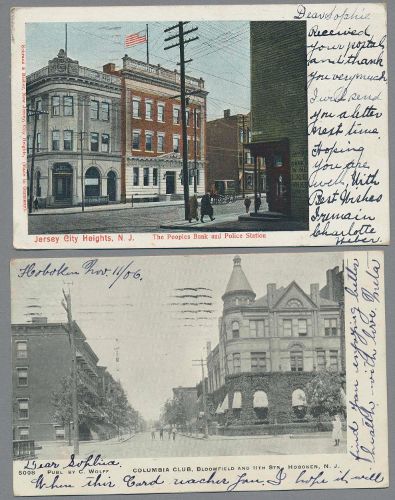 Dear Sophie
Received
your postal
and thank
you very much
I will send
you a better
next time.
Hoping
you are
well, With
Best Wishes
I remain
Charlotte
Weber
Jersey City Heights, N. J.
The Peoples Bank and Police Station
Hoboken Nov. 11/06.
5098 PUBL. BY C. WOLFF
COLUMBIA CLUB, BLOOMFIELD AND 11TH STS. HOBOKEN, N. J.
Dear Sophia.
When this Card reaches you, I hope it will
find you enjoying better
health – with love Meta